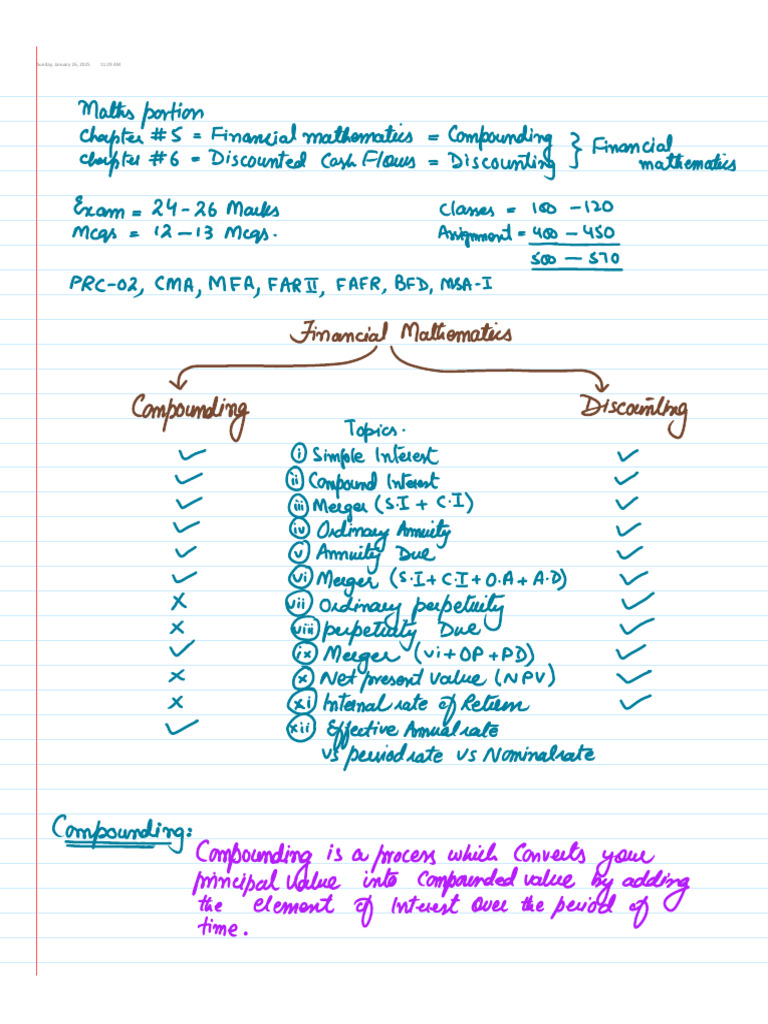 Sunday, January 26, 2025 11:29 AM
Maths portion
Chapter #5 = Financial mathematics = Compounding
Chapter #6 = Discounted Cash Flows = Discounting } Financial mathematics
Exam = 24-26 Marks Classes = 100 - 120
Mcqs = 12-13 Mcqs. Assignment = 400 - 450
500 - 570
PRC-02, CMA, MFA, FAR II, FAFR, BFD, MSA-I
Financial Mathematics
Compounding Discounting
Topics.
✓ (i) Simple Interest ✓
✓ (ii) Compound Interest ✓
✓ (iii) Merger (S.I + C.I) ✓
✓ (iv) Ordinary Annuity ✓
✓ (v) Annuity Due ✓
✓ (vi) Merger (S.I+C.I+O.A+A.D) ✓
× (vii) Ordinary perpetuity ✓
× (viii) perpetuity Due ✓
✓ (ix) Merger (vi+OP+PD) ✓
× (x) Net present value (NPV) ✓
× (xi) Internal rate of Return ✓
✓ (xii) Effective Annual rate
vs period rate vs Nominal rate
Compounding:
Compounding is a process which converts your
principal value into compounded value by adding
the element of Interest over the period of
time.